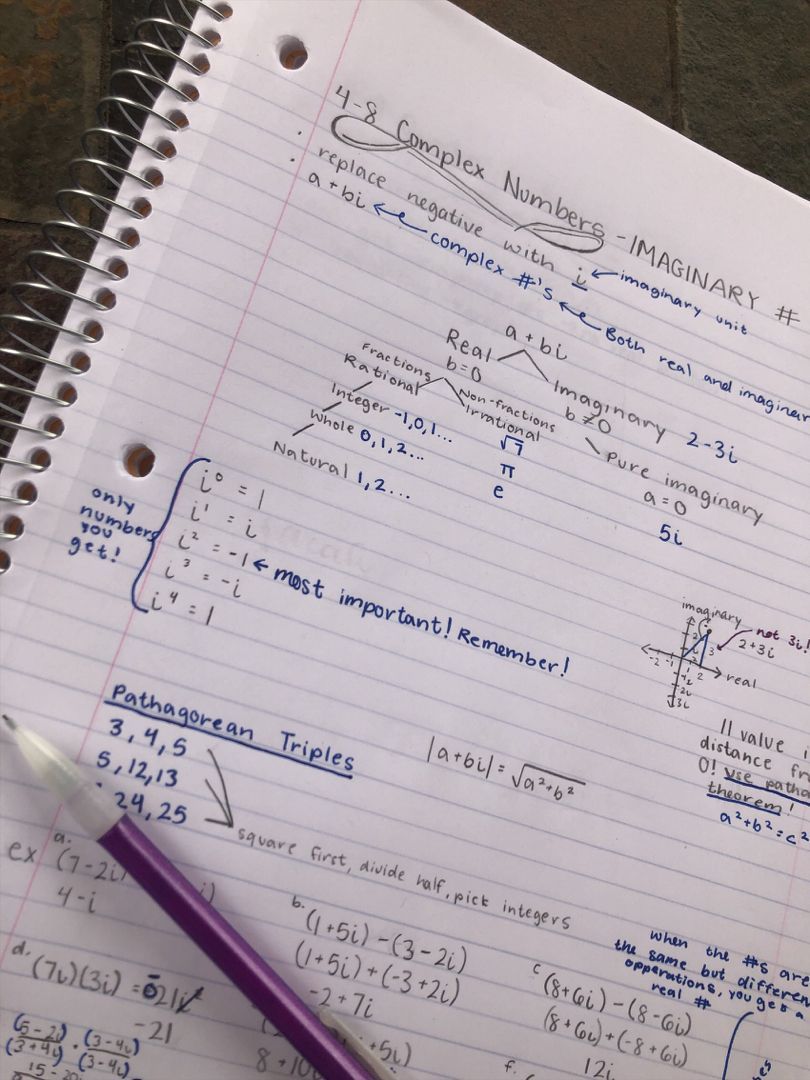 4-8 Complex Numbers - IMAGINARY #
· replace negative with i ← imaginary unit
· a + bi ← complex #'s ← Both real and
a + bi
Real
b = 0
Imaginary 2 - 3i
b ≠ 0
Pure imaginary
a = 0
5i
Fractions
Rational
Non-fractions
Irrational
√7
π
e
Integer -1, 0, 1...
Whole 0, 1, 2...
Natural 1, 2...
only
numbers
you
get!
i⁰ = 1
i¹ = i
i² = -1 ← most important! Remember!
i³ = -i
i⁴ = 1
imaginary
not 3i!
2 + 3i
real
|| value
distance
0! use
theorem!
a² + b² = c²
Pathagorean Triples
3, 4, 5
5, 12, 13
24, 25
square first, divide half, pick integers
|a + bi| = √a² + b²
ex a.
(7 - 2i)
4 - i
b.
(1 + 5i) - (3 - 2i)
(1 + 5i) + (-3 + 2i)
-2 + 7i
c
(8 + 6i) - (8 - 6i)
(8 + 6i) + (-8 + 6i)
12i
when the #s are
the same but
opperations, you get a
real #
d.
(7i)(3i) = 21i²
-21
(5 - 2i) · (3 - 4i)
(3 + 4i) (3 - 4i)
+ 5i)
f.